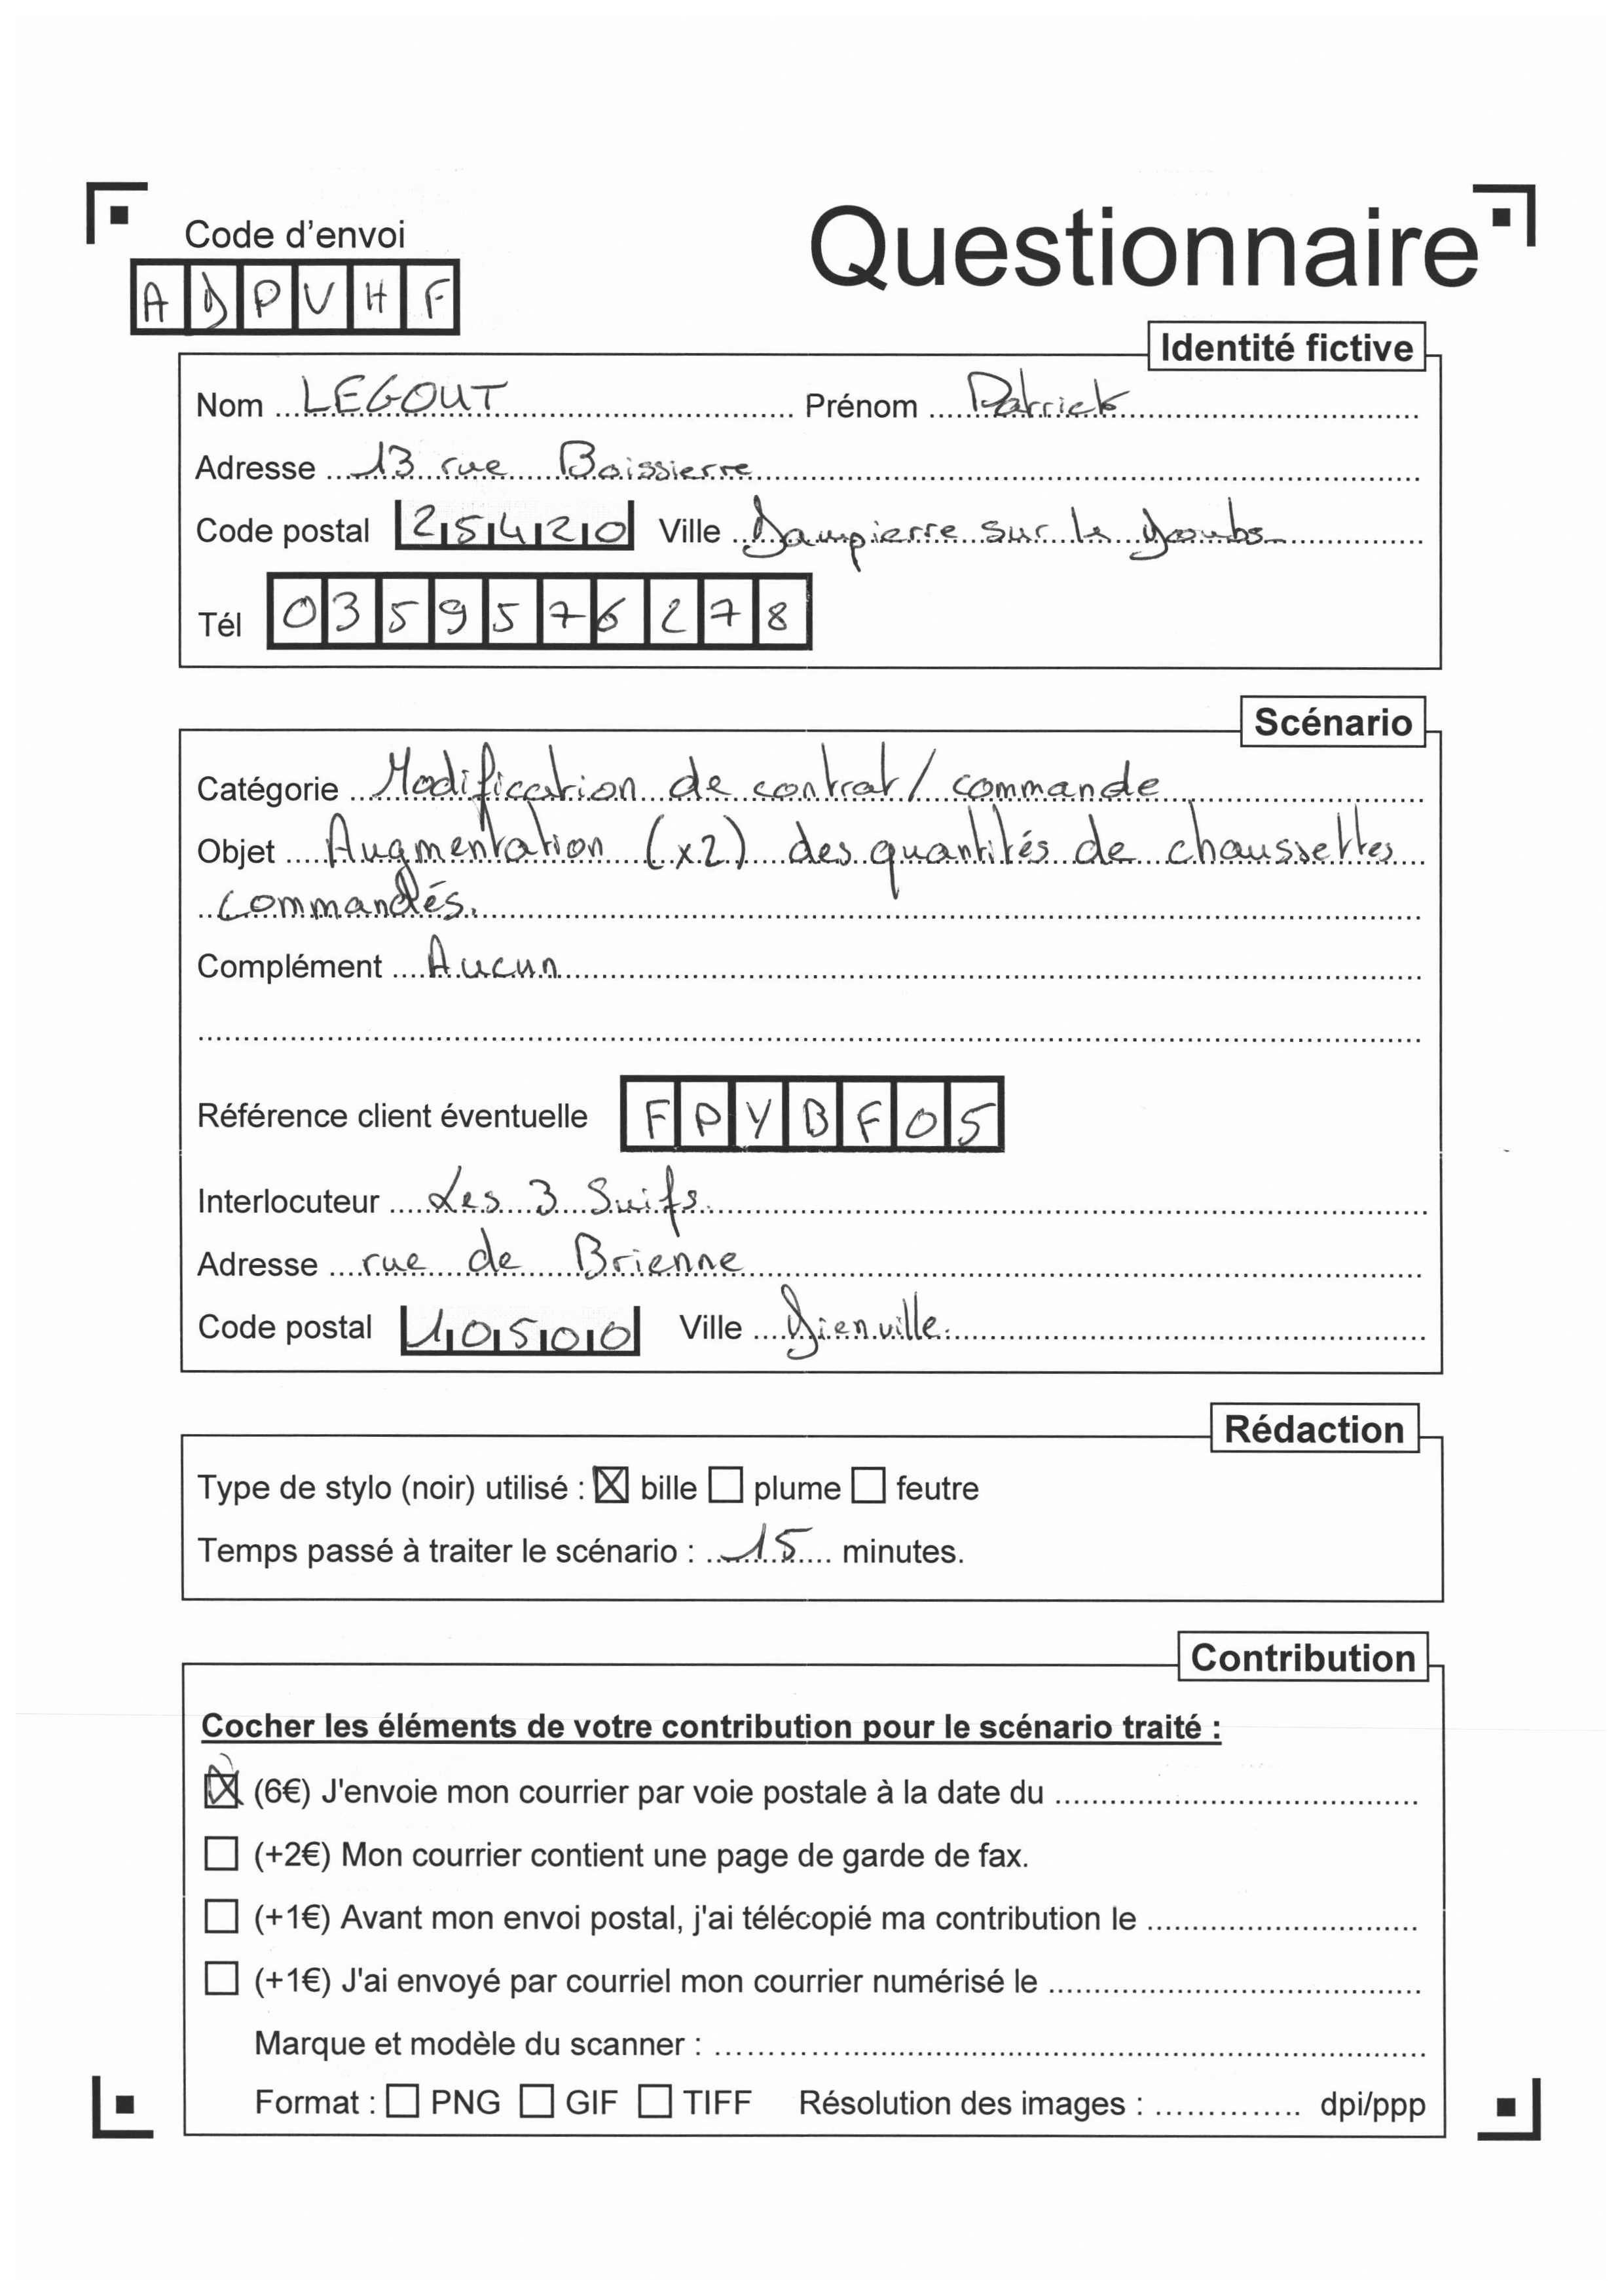 Code d'envoi
Questionnaire
A D P V H F
Identité fictive
Nom LEGOUT Prénom Patrick
Adresse 13 rue Boissierre
Code postal 25420 Ville Dampierre sur le Doubs
Tél 0359576278
Scénario
Catégorie Modification de contrat / commande
Objet Augmentation (x2) des quantités de chaussettes
commandés.
Complément Aucun
Référence client éventuelle FPYBF05
Interlocuteur Les 3 Suifs.
Adresse rue de Brienne
Code postal 10500 Ville Dienville.
Rédaction
Type de stylo (noir) utilisé : ☒ bille ☐ plume ☐ feutre
Temps passé à traiter le scénario : 15 minutes.
Contribution
Cocher les éléments de votre contribution pour le scénario traité :
☒ (6€) J'envoie mon courrier par voie postale à la date du
☐ (+2€) Mon courrier contient une page de garde de fax.
☐ (+1€) Avant mon envoi postal, j'ai télécopié ma contribution le
☐ (+1€) J'ai envoyé par courriel mon courrier numérisé le
Marque et modèle du scanner :
Format : ☐ PNG ☐ GIF ☐ TIFF Résolution des images : dpi/ppp